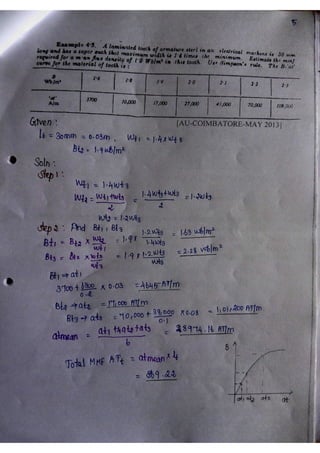 5
Example 4·3. A laminated tooth of armature steel in an electrical machine is 30 mm
long and has a taper such that maximum width is 1·4 times the minimum. Estimate the mmf
required for a mean flux density of 1·9 Wb/m² in this tooth. Use Simpson's rule. The B-at
curve for the material of tooth is :
B Wb/m² 1·6 1·8 1·9 2·0 2·1 2·2 2·3
'at' A/m 3700 10,000 17,000 27,000 41,000 70,000 108,000
Given :
[AU-COIMBATORE-MAY 2013]
lt = 30mm = 0.03m, Wt1 = 1.4 Wt3
Bt2 = 1.9 wb/m²
Soln :
Step 1 :
Wt1 = 1.4Wt3
Wt2 = Wt1+Wt3 / 2 = 1.4Wt3+Wt3 / 2 = 1.2Wt3
Wt2 = 1.2Wt3
Step 2 : Find Bt1, Bt3
Bt1 = Bt2 x Wt2/Wt1 = 1.9 x 1.2Wt3/1.4Wt3 = 1.63 wb/m²
Bt3 = Bt2 x Wt2/Wt3 = 1.9 x 1.2Wt3/Wt3 = 2.28 wb/m²
Bt1 → at1
3700 + 6300/0.2 x 0.03 = 4645 AT/m
Bt2 → at2 = 17,000 AT/m
Bt3 → at3 = 70,000 + 38,000/0.1 x 0.08 = 1,01,200 AT/m
atmean = at1 + 4at2 + at3 / 6 = 28974.16 AT/m
Total MMF ATt = atmean x lt
= 869.22
B
at1 at2 at3 at